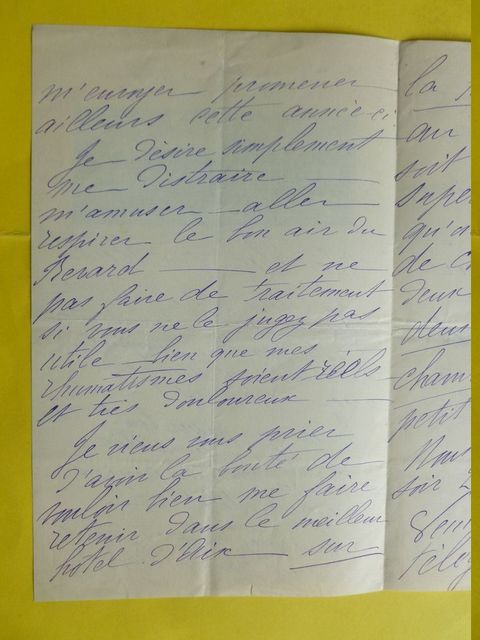 m'envoyer promener
ailleurs cette année-ci
Je désire simplement
me distraire —
m'amuser — aller
respirer le bon air du
Revard — et ne
pas faire de traitement
si vous ne le jugez pas
utile bien que mes
rhumatismes soient réels
et très douloureux —
Je viens vous prier
d'avoir la bonté de
vouloir bien me faire
retenir dans le meilleur
hôtel d'Aix — sur
la
au
soit
qu'
de
deux
petit
Nous
soir